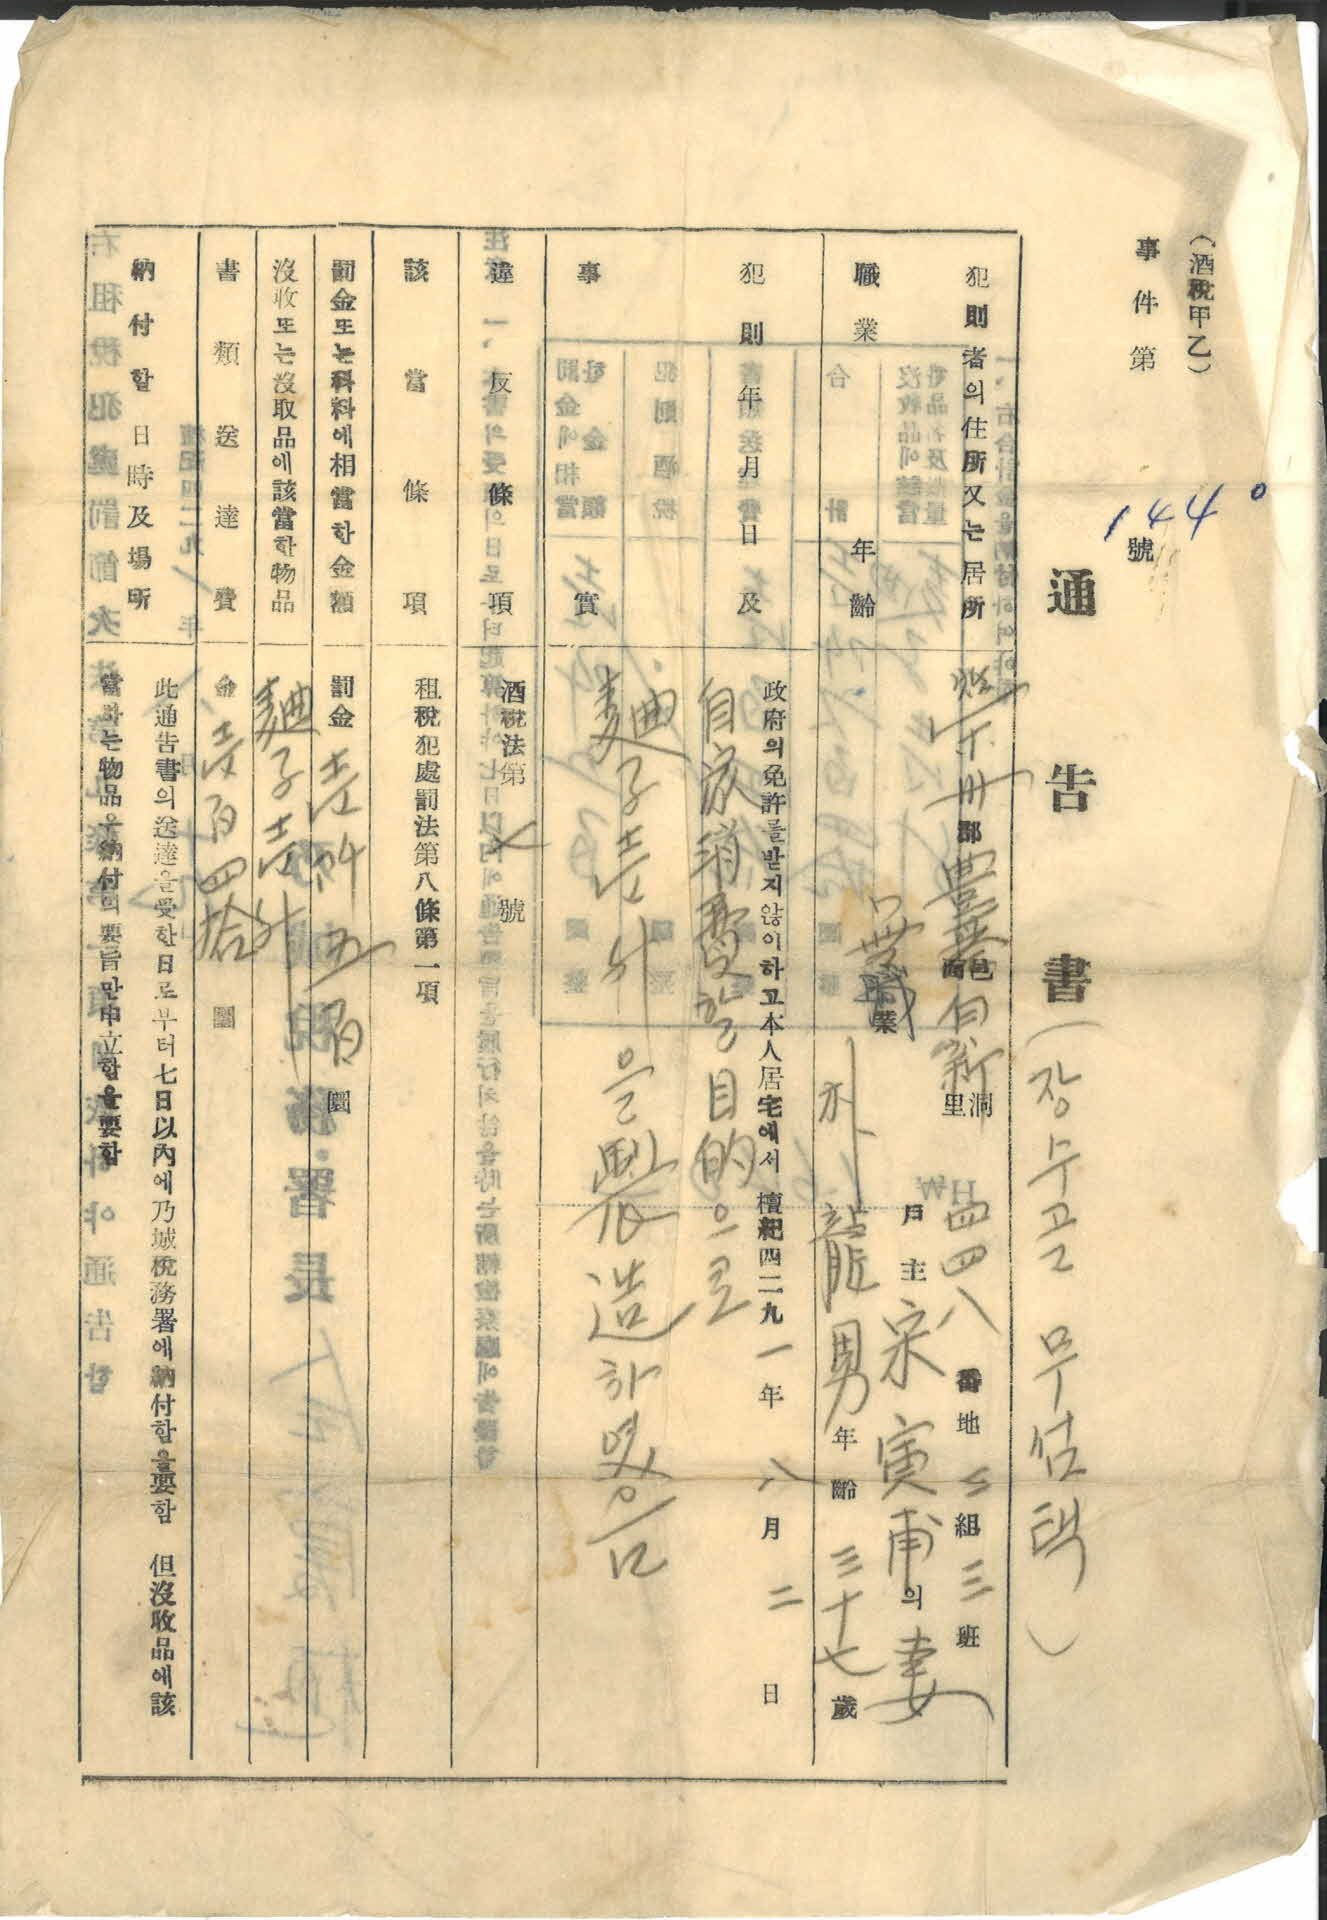 (酒稅甲乙)
事件第 1440 號
通告書 (장수골 무섬댁)
犯則者의住所又는居所
榮州郡 豊基 邑面 白新 洞里 四四八 番地 組 三 班
戶主 宋寅甫의 妻
職業 年齡
無職業 朴龍男 年齡 三十七 歲
犯則年月日及
政府의免許를받지않이하고本人居宅에서 檀紀四二九一年 八月 二日
自家消費할目的으로
事實
麯子壹外을製造하였음
違反條項
酒稅法第 號
該當條項
租稅犯處罰法第八條第一項
罰金또는科料에相當한金額
罰金 壹阡五百 圜
沒收또는沒取品에該當한物品
麯子壹外
書類送達費
金 壹百四拾 圜
納付할日時及場所
此通告書의送達을受한日로부터七日以內에乃城稅務署에納付함을要함 但沒收品에該
當하는物品은納付의要旨만申立함을要함